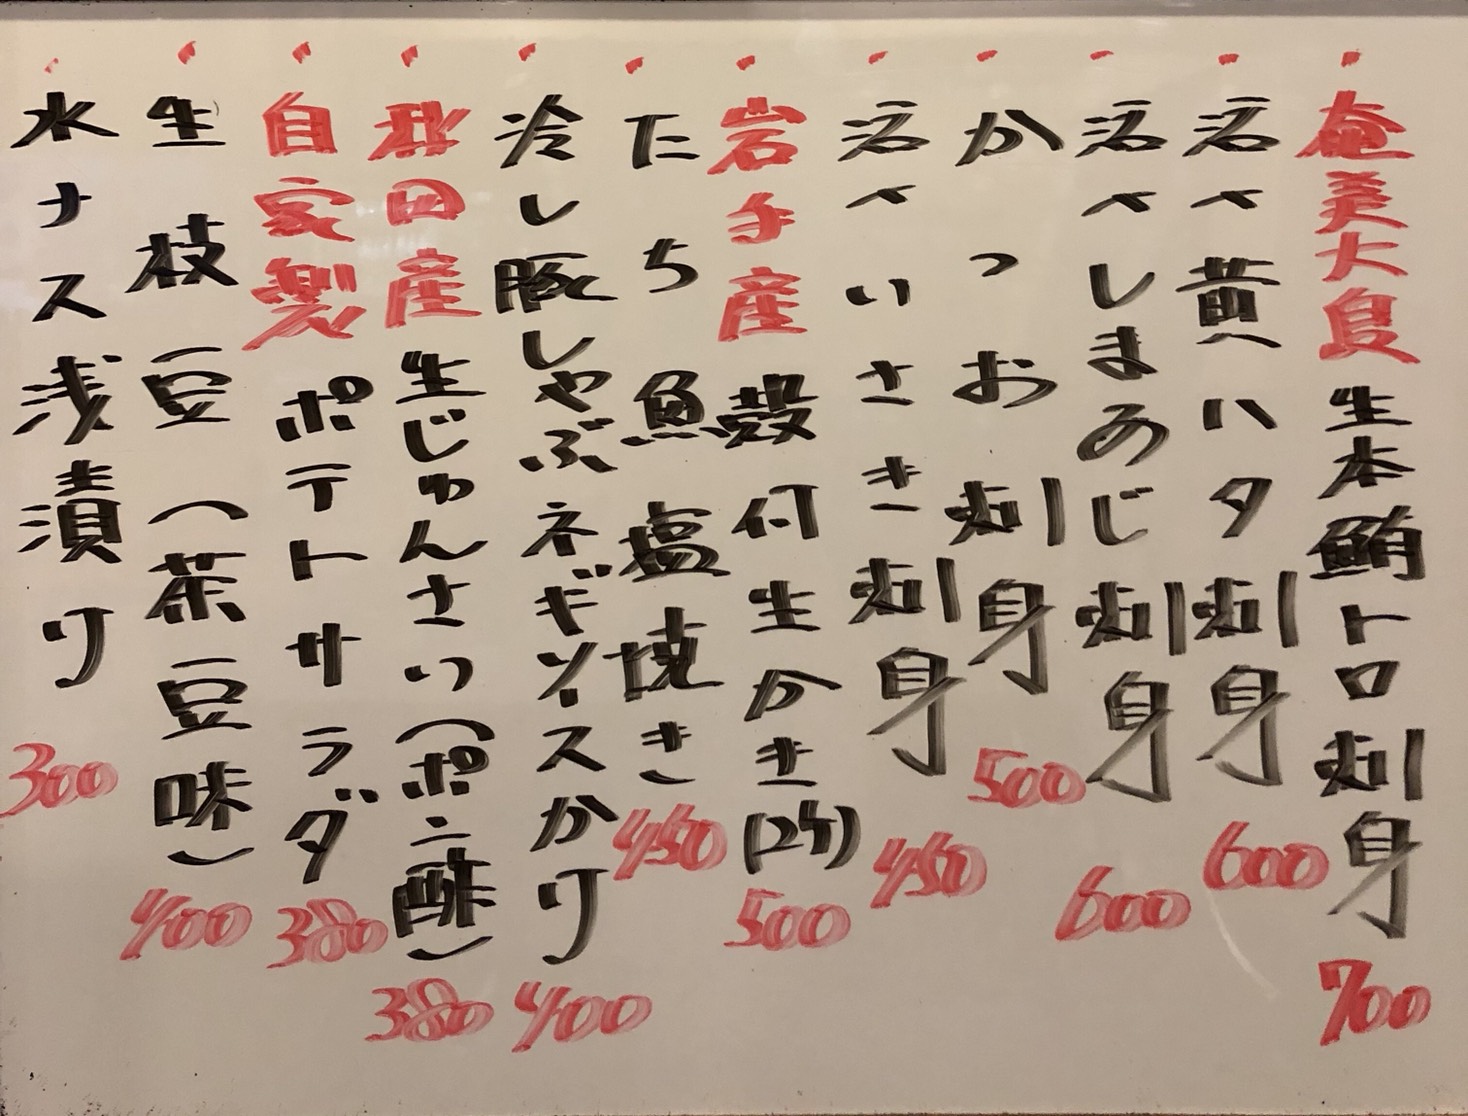 奄美大島 生本鮪トロ刺身 700
活〆黄ハタ刺身 600
活〆しまあじ刺身 600
かつお刺身 500
活〆いさき刺身 450
岩手産 殻付生かき(2ケ) 500
たち魚塩焼き 450
冷し豚しゃぶネギソースかけ 400
秋田産 生じゅんさい(ポン酢) 380
自家製 ポテトサラダ 380
生枝豆(茶豆味) 400
水ナス浅漬け 300